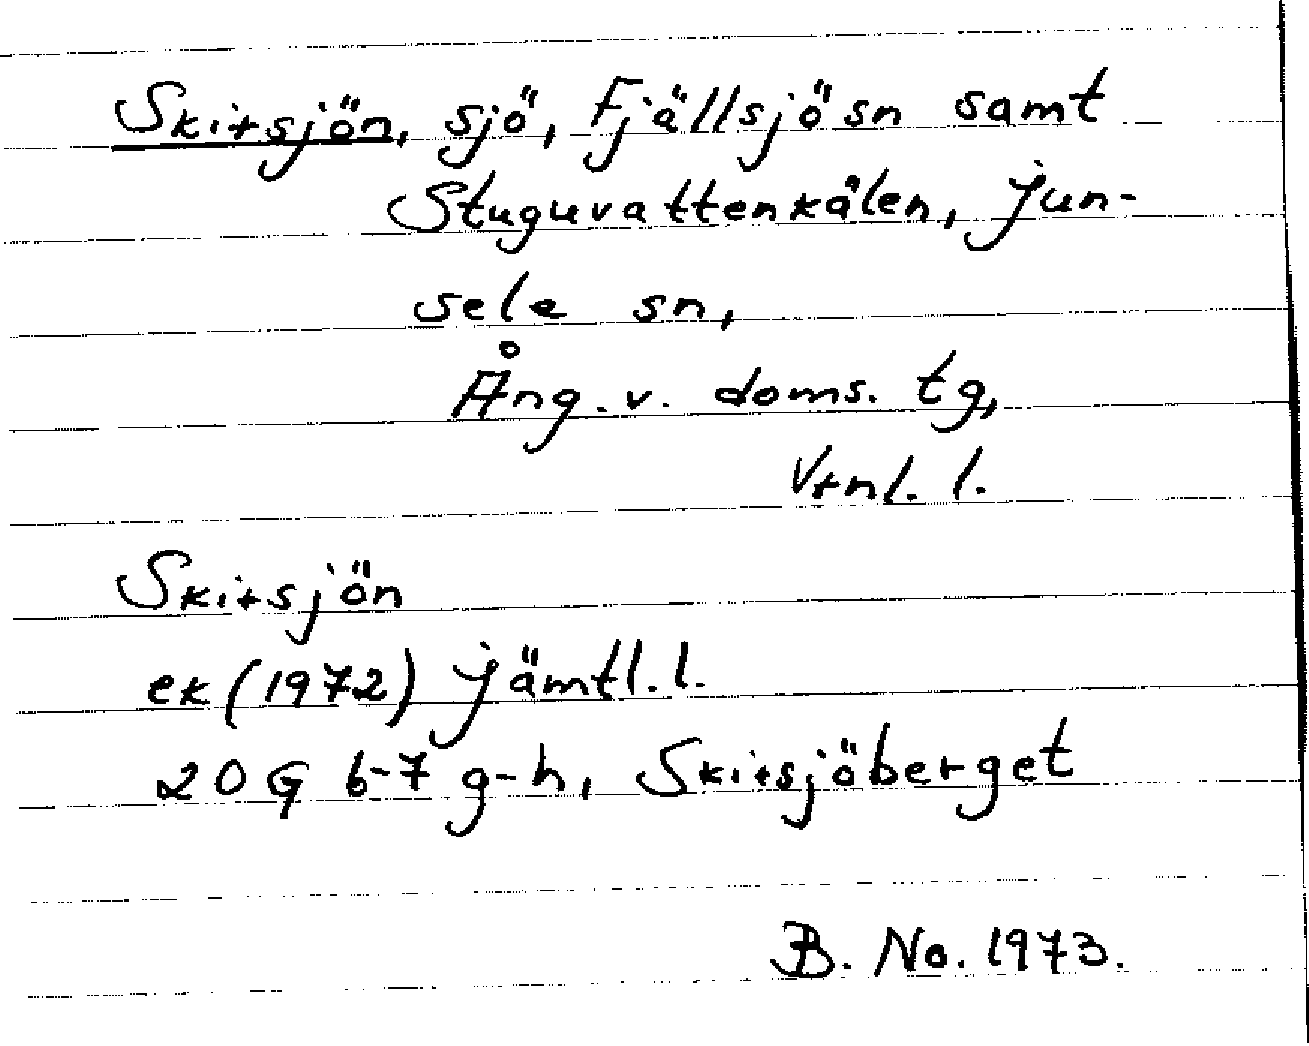 Skirsjön, sjö, Fjällsjö sn samt
Stuguvattenkålen, Jun-
sele sn,
Ång. v. doms. tg,
Vtnl. l.
Skirsjön
ek (1972) Jämtl. l.
20 G 6-7 g-h, Skirsjöberget
B. No. 1973.